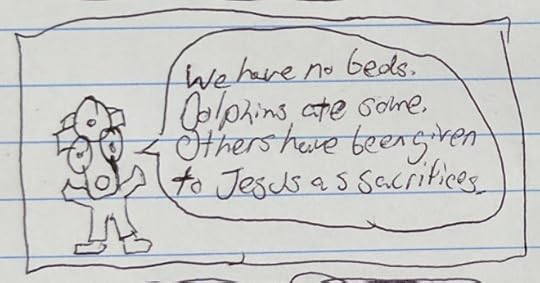 We have no beds.
Dolphins ate some.
Others have been given
to Jesus as sacrifices.